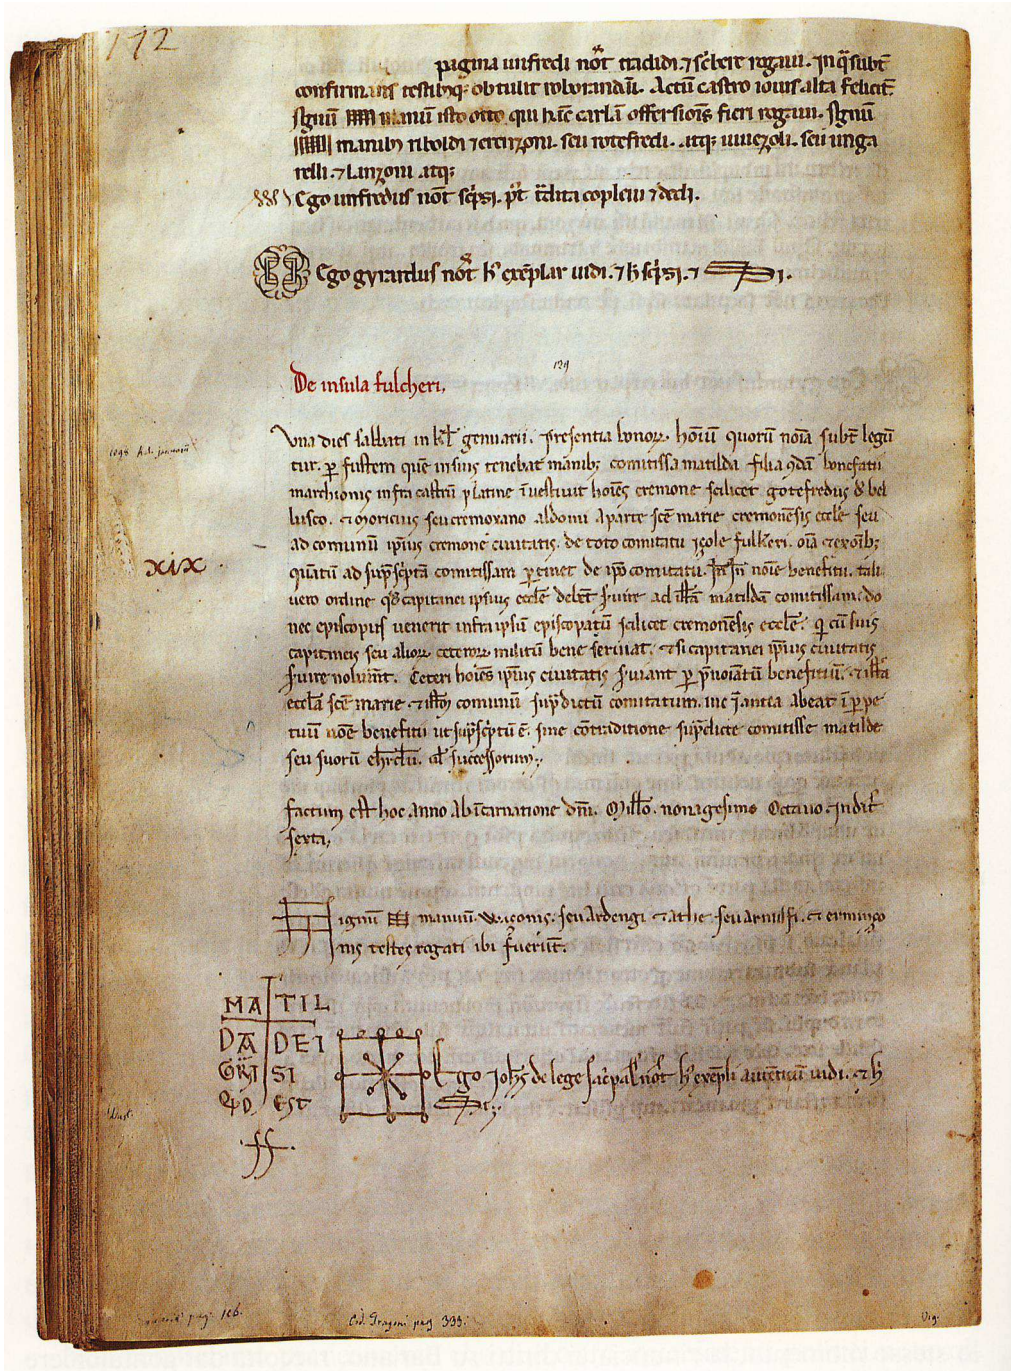 112
pagina unfredi not tradidi. ⁊ scbere rogaui. In q̃ subt
confirmans testibusq; obtulit roborandā. Actū castro iouis alta felicit̄
signū manuū isto otto qui hanc cartā offersionis fieri rogaui. signū
manibus riboldi ⁊ erenzoni. seu rotefredi. atq; seu unga
relli. ⁊ lanzoni atq;
Ego unfredus not̄ scp̄si. p̄t t̄dita copleui ⁊ dedi.
Ego gyrardus not̄ h̄ exēplar uidi. ⁊ h̄ scp̄si. ⁊
129
De insula fulcheri.
Una dies sabbati in kł genuarii. presentia bonoꝝ. hoīuī quorū noīa subt̄ legū
tur. ꝑ fustem quē in suis tenebat manib; comitissa matilda filia qdā bonefatii
1098 kal. januarii
marchionis infra castrū platine īuestiuit hoīes cremone scilicet gotefredus & bel
lusco. ⁊ moricius seu cremoxano aldoini a parte scē marie cremonēsis eccłe seu
ad comunū ipsius cremone ciuitatis. de toto comitatu isole fulkeri. oīa ⁊ ex oīb;
xix
quātū ad sup̄scp̄tā comitissam ꝑtinet de ip̄o comitatu. noīe benefitii. tali
uero ordine qd capitanei ipsius eccłe debēt s̄uire ad istā matildā comitissam. do
nec episcopus uenerit infra ipsū episcopatū scilicet cremonēsis eccłe. q̄ cū suis
capitaneis seu alioꝝ ceteroꝝ militū bene seruiat. ⁊ si capitanei ipsius ciuitatis
s̄uire noluerint. Ceteri hoīes ipsius ciuitatis s̄uiant ꝑ benefitiū. ⁊ istā
eccłā scē marie ⁊ istū comunū sup̄dictū comitatum. abeat ī ꝑpe
tuū noīe benefitii ut sup̄scp̄tū ē. sine cōtraditione sup̄dicte comitisse matilde
seu suorū ehrēdū. ał successorum.
factum est hoc anno ab īcarnatione dn̄i. Millō. nonagesimo Octauo. Indit̄
sexta.
Signū manuum. Wiçonis. seu Ardengi ⁊ athe seu arnulfi. ⁊ erminço
nis testes rogati ibi fuerūt.
MA TIL
DA DEI
GRA SI
QVID EST
Ego Johēs de lege sac̄ pał not̄ h̄ exēpli autēticū uidi. ⁊ h̄
Cod. Dragoni pag 333.